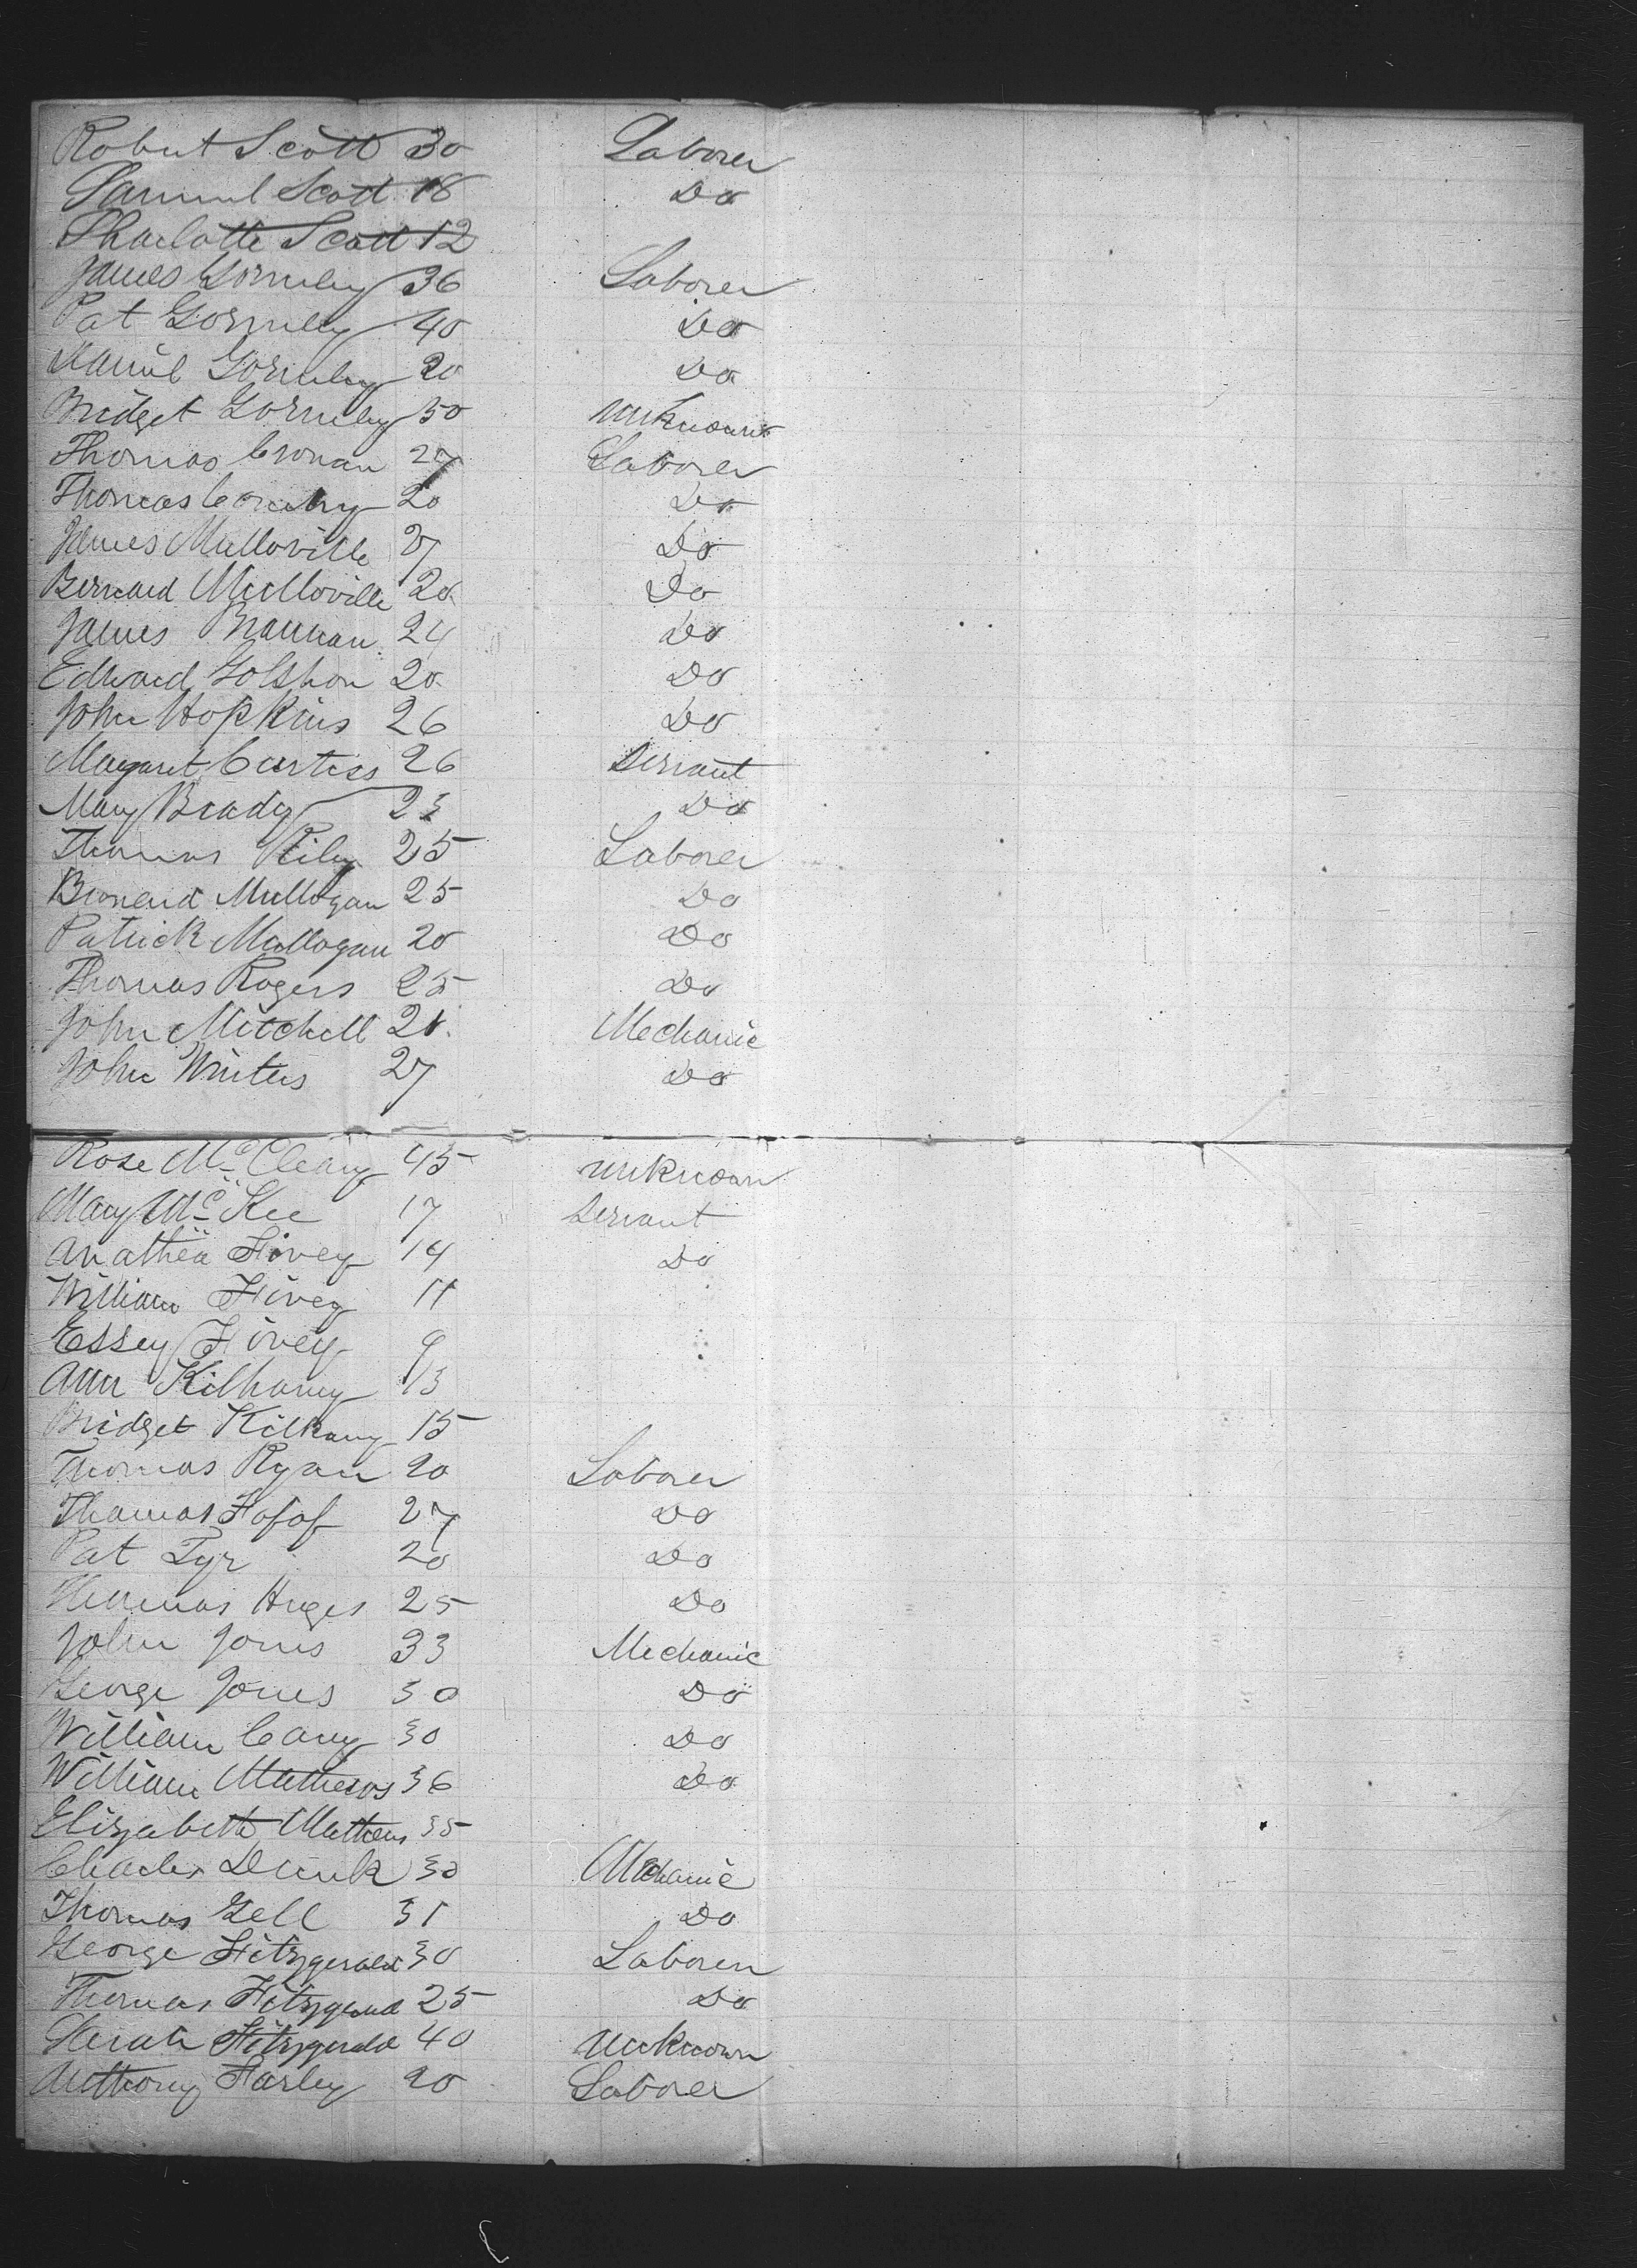 Robert Scott 30 Laborer
Samuel Scott 18 Do
Charlotte Scott 12
James Gormley 36 Laborer
Pat Gormley 40 Do
Daniel Gormley 20 Do
Bridget Gormley 50 Unknown
Thomas Cronan 27 Laborer
Thomas 20 Do
James Mulloville 27 Do
Bernard Mulloville 20 Do
James Brannan 24 Do
Edward Golshon 20 Do
John Hopkins 26 Do
Margaret Curtiss 26 Servant
Mary Brady 23 Do
Thomas Riley 25 Laborer
Bernard Mullogan 25 Do
Patrick Mullogan 20 Do
Thomas Rogers 25 Do
John Mitchell Mechanic
John Winters 27 Do
Rose McCleary 45 unknown
Mary McKee 17 Servant
Anathea Fivey 14 Do
William Fivey 11
Essey Fivey 9
Ann Kilhany 13
Bridget Kilkany 15
Thomas Ryan 20 Laborer
Thomas 27 Do
Pat Tyr 20 Do
Thomas Huges 25 Do
John Jones 33 Mechanic
George Jones 30 Do
William Cary 30 Do
William Mathews 36 Do
Elizabeth Mathews 35
Charles 30 Mechanic
Thomas Gell 31 Do
George Fitzgerald 30 Laborer
Thomas Fitzgerald 25 Do
Sarah Fitzgerald 40 Unknown
Anthony Farley 20 Laborer